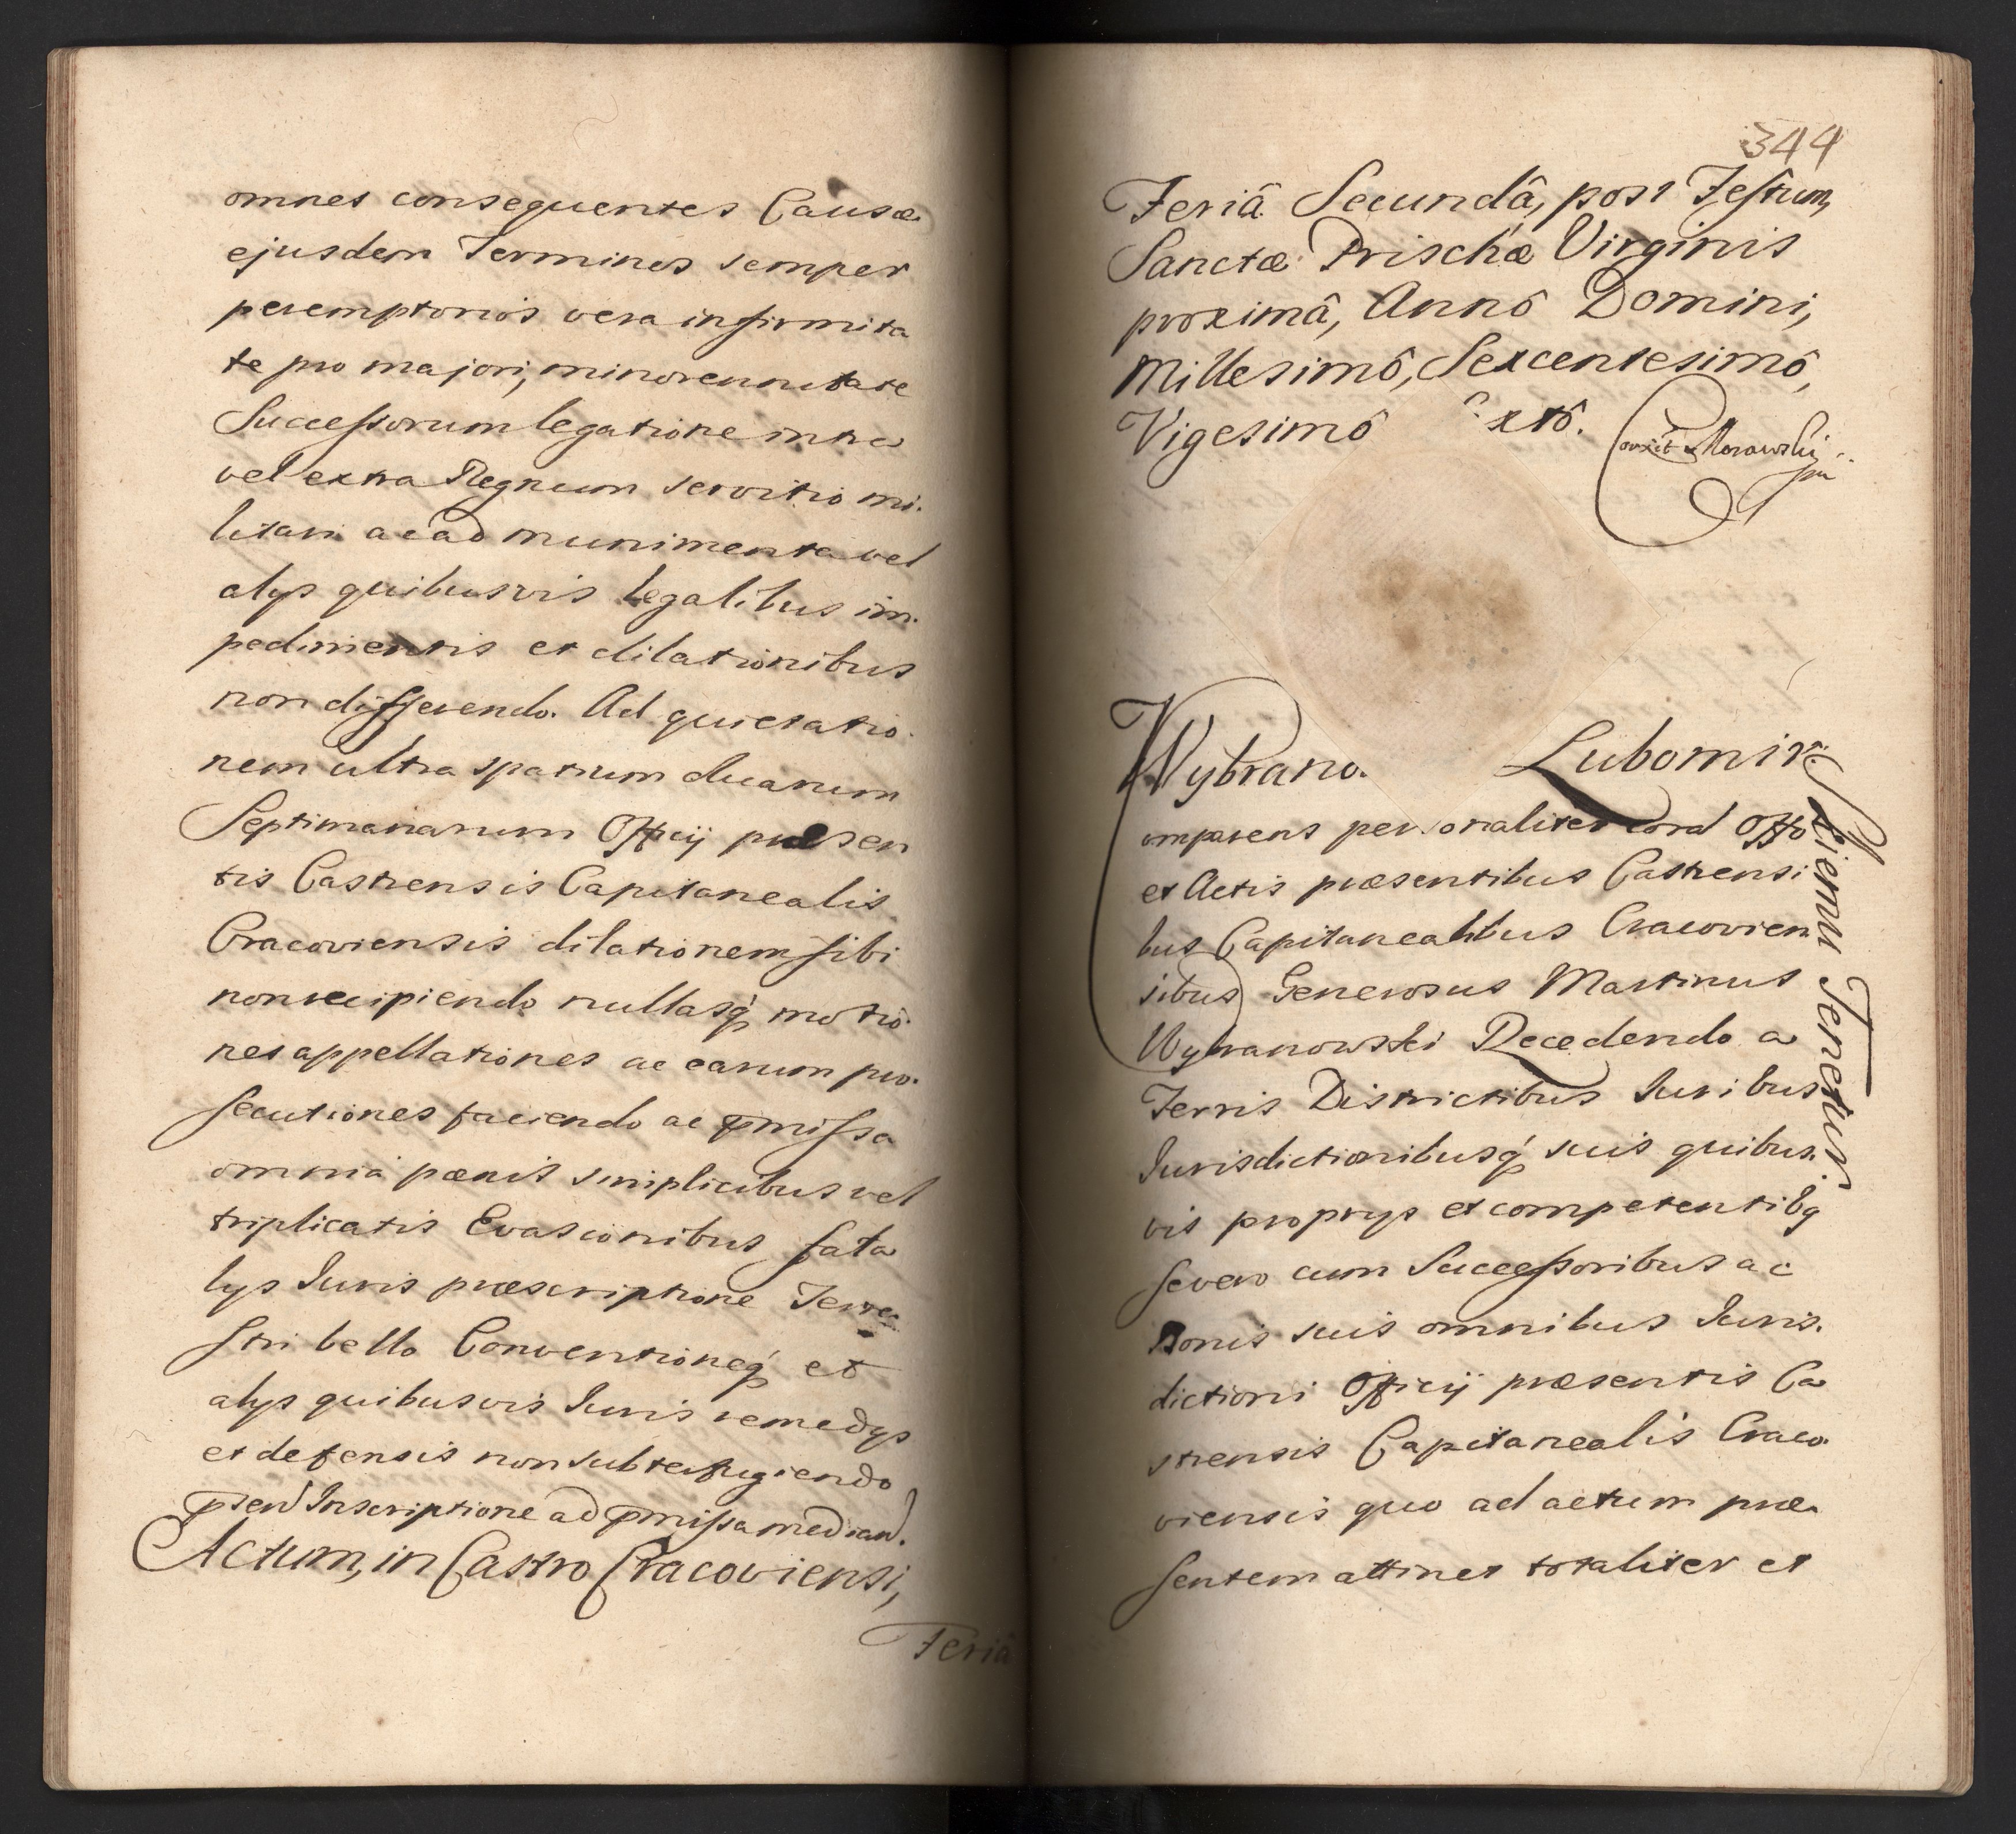 omnes consequentes Causæ
ejusdem Terminos semper
peremptorios vera infirmita
te pro majori, minorennitate
Successorum legatione intra
vel extra Regnum servitio mi.
litari ac ad munimenta vel
alys quibusvis legalibus im.
pedimentis et dilationibus
non differendo. Ad quietatio.
nem ultra spatium duarum
Septimanarum Officij præsen
tis Castrensis Capitanealis
Cracoviensis dilationem sibi
non recipiendo nullasq́ motio.
nes appellationes ac earum pro.
secutiones faciendo ac p̄missa
omnia pænis simplicibus vel
triplicatis Evasionibus fata
lys Iuris præscriptione Terre
stri bello Conventioneq́ et
alys quibusvis Iuris remedys
et defensis non subterfugiendo
p̄sen Inscriptione ad p̄missa median.
Actum, in Castro Cracoviensi,
Feriâ
344
Feriâ Secundâ, post Festum,
Sanctæ Prischæ Virginis
proximâ, Annô Domini,
Millesimô, Sexcentesimô,
Vigesimô xtô.
Morawski
Wybrano. Lubomir.
Skiemu Tenetur
omparens personaliter corā Offo
et Actis præsentibus Castrensi
bus Capitanealibus Cracovien
sibus Generosus Martinus
Wybranowski Recedendo a
Terris Districtibus Iuribus
Iurisdictionibusq́ suis quibus.
vis proprys et competentibq
se vero cum Successoribus ac
Bonis suis omnibus Iuris.
dictioni Officij præsentis Ca
strensis Capitanealis Craco.
viensis quo ad actum præ
sentem attinet totaliter et